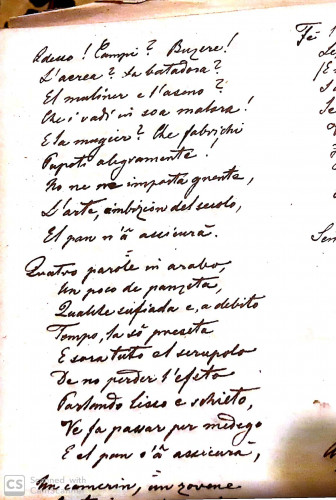 Adesso! Campi? Buzere!
L'aerea? La batadora?
El muliner e l'aseno?
Che i vadi in soa malora!
E la mugier? Che fabrichi
Pupoti alegramente!
No ne me importa gnente,
L'arte, ambizion del secolo,
El pan n'à assicurà.
Quatro parole in arabo,
Un poco de panzeta,
Qualche sufiada e, a debito
Tempo, la so preseta
E sora tuto al scrupolo
De no perder l'efeto
Parlando lisso e schieto,
Ve fa passar per medego
E el pan s'à assicurà,
In camerin, un zovene
Fé
Sen
CS Scanned with